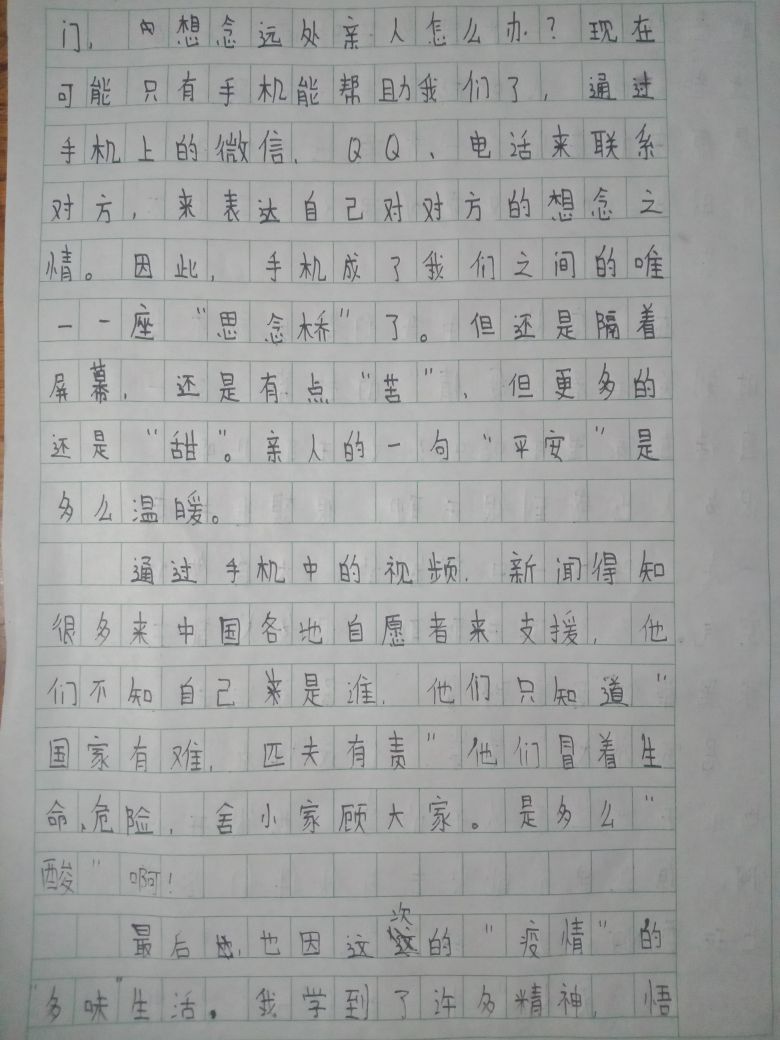 门，因想念远处亲人怎么办？现在
可能只有手机能帮助我们了，通过
手机上的微信、QQ、电话来联系
对方，来表达自己对对方的想念之
情。因此，手机成了我们之间的唯
一一座“思念桥”了。但还是隔着
屏幕，还是有点“苦”，但更多的
还是“甜”。亲人的一句“平安”是
多么温暖。
通过手机中的视频、新闻得知
很多来中国各地自愿者来支援，他
们不知自己来是谁，他们只知道“
国家有难，匹夫有责”他们冒着生
命危险，舍小家顾大家。是多么“
酸”啊！
最后，也因这次的“疫情”的
“多味”生活。我学到了许多精神，悟